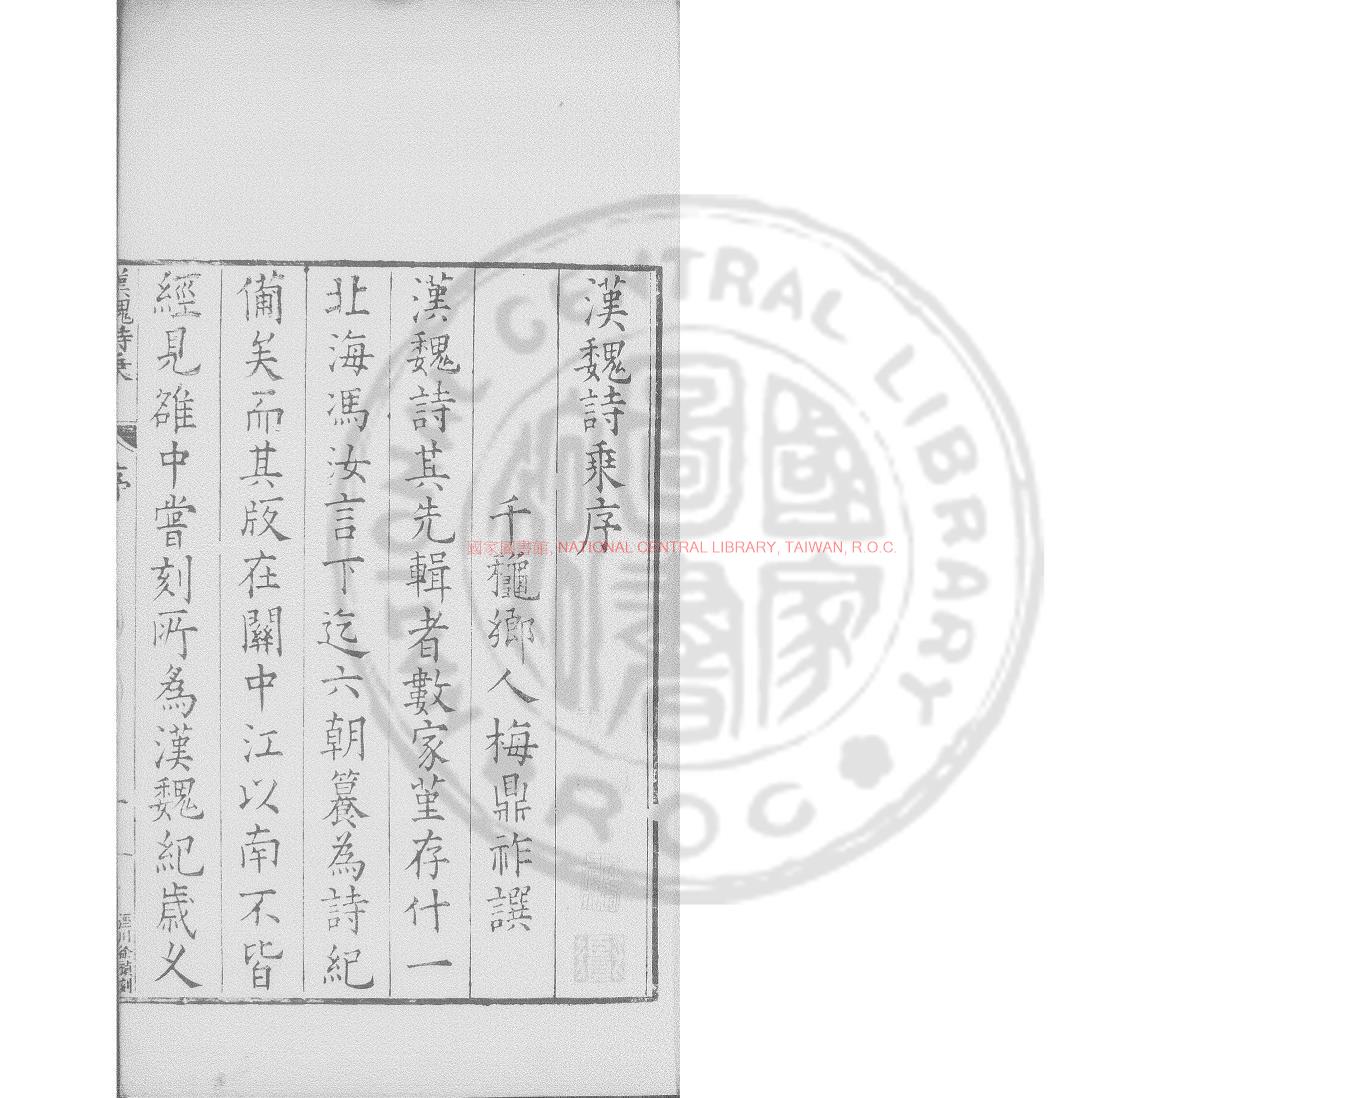 漢魏詩乗序
千龝鄉人梅鼎祚譔
漢魏詩其先輯者數家堇存什一
北海馮汝言下迄六朝篹為詩紀
備矣而其版在關中江以南不皆
經見雒中嘗刻所爲漢魏紀歲乆
漢魏詩乗
序
一
國家圖書館, NATIONAL CENTRAL LIBRARY, TAIWAN, R.O.C.
NATIONAL CENTRAL LIBRARY
R O C
國家圖書